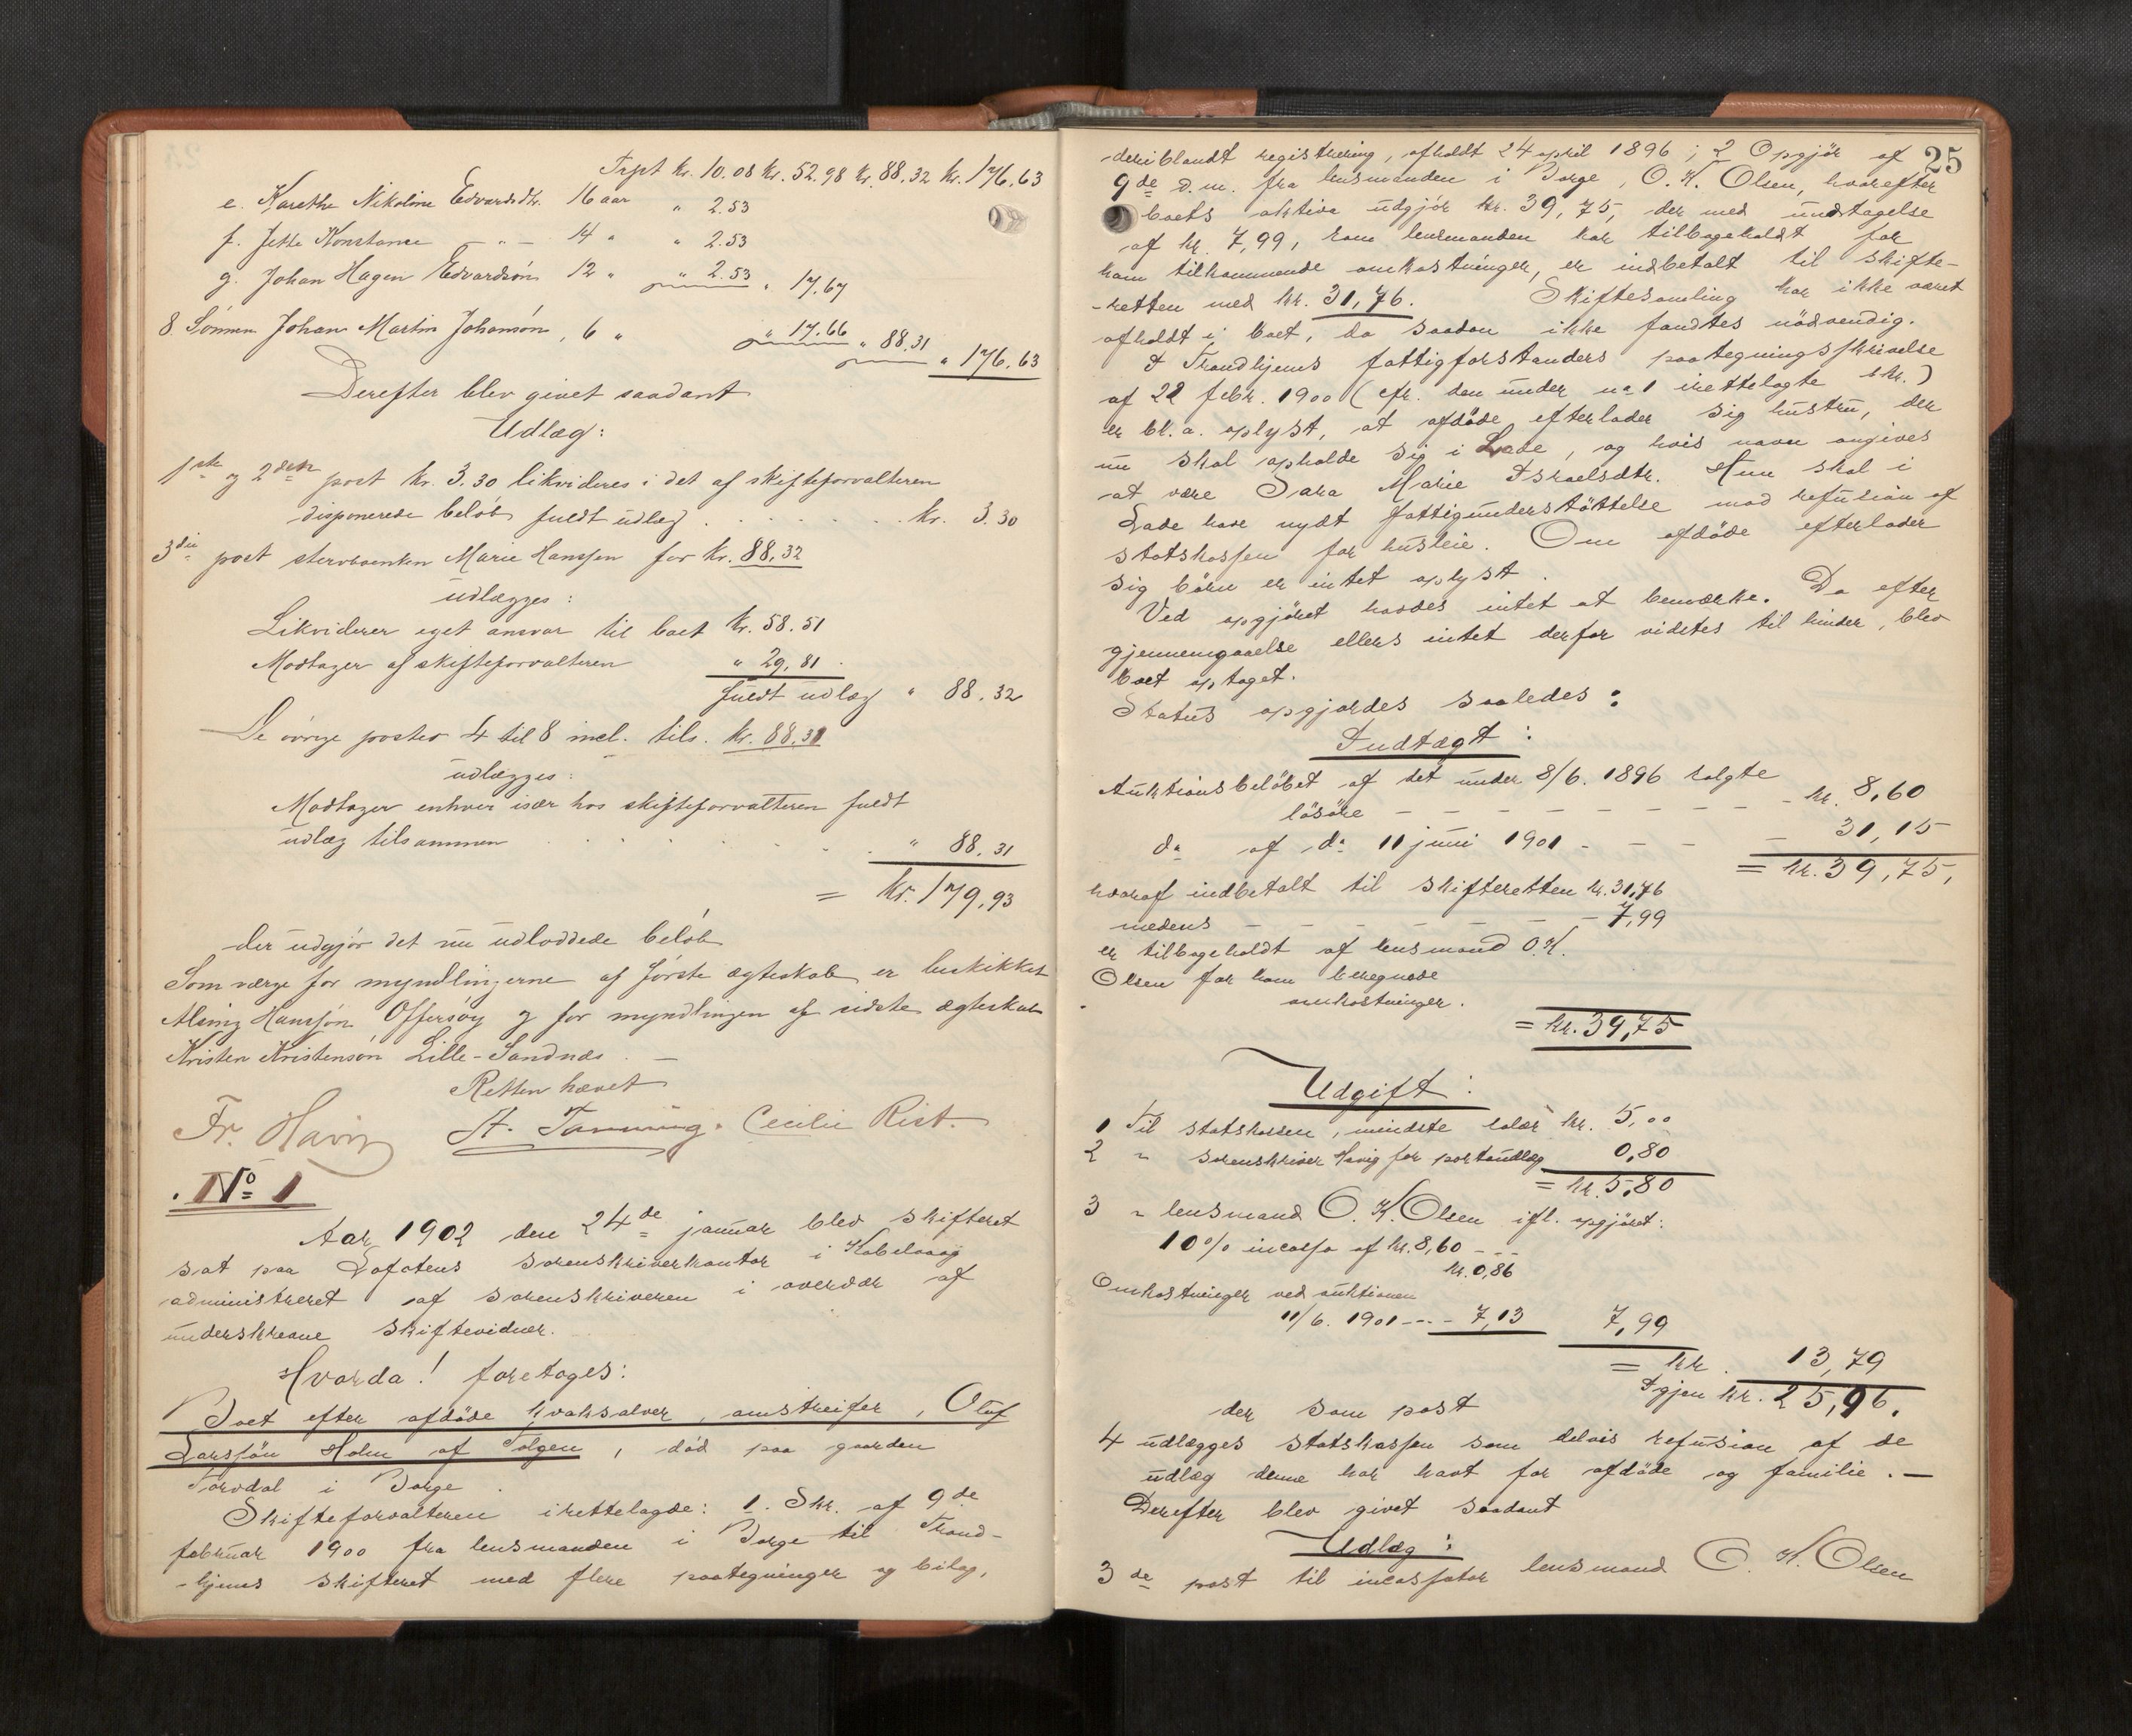 Trpt kr. 10.08 kr. 52.98 kr. 88.32 kr. 176.63
e. Karethe Nikoline Edvardsdtr. 16 aar " 2.53
f. Jette Konstance — " — 14 " " 2.53
g. Johan Hagen Edvardsön 12 " " 2.53 " 17.67
8 Sönnen Johan Martin Johansön, 6 " " 17.66 " 88.31 " 176.63
Derefter blev givet saadant
Udlæg:
1ste og 2den post kr. 3.30 likvideres i det af skifteforvalteren
disponerede beløb fuldt udlæg . . . . . . . . kr. 3.30
3die post stervboenken Marie Hanssen for kr. 88.32
udlægges:
Likviderer eget ansvar til boet kr. 58.51
Modtager af skifteforvalteren " 29,81
fuldt udlæg " 88.32
De övrige poster 4 til 8 incl. tils. kr. 88.31
udlægges:
Modtager enhver især hos skifteforvalteren fuldt
udlæg tilsammen . . . . . . . " 88.31
= kr. 179,93
der udgjör det nu udloddede belöb
Som værge for myndlingerne af förste ægteskab er beskikket
Hansjön Offersöy og for myndlingen af sidste ægteskab
Kristen Kristensön Lille-Sandnæs. —
Retten hævet
Fr. Havig A. Tønning. Cecilie Rist.
No 1
Aar 1902 den 24de januar blev skifteret
sat paa Lofotens sorenskriverkontor i Kabelvaag
administreret af sorenskriveren i overvær af
underskrevne skiftevidner.
Hvorda! foretages:
Boet efter afdöde kvaksalver, omstreifer, Oluf
Larssön Holm af Tolgen, död paa gaarden
i Borge.
Skifteforvalteren irettelagde: 1. Skr. af 9de
februar 1900 fra lensmanden i Borge til Trond-
-hjems skifteret med flere paategninger og bilag,
25
-deriblandt registrering, afholdt 24 april 1896; 2 Opgjör af
9de d.m. fra lensmanden i Borge, O. K. Olsen, hvorefter
boets aktiva udgjör kr. 39,75, der med undtagelse
af kr. 7,99, som lensmanden har tilbageholdt for
ham tilkommende omkostninger, er indbetalt til skifte-
-retten med kr. 31,76. Skiftesamling har ikke været
afholdt i boet, da saadan ikke fandtes nödvendig.
I Trondhjems fattigforstanders paategningsskrivelse
af 28 febr. 1900 (cfr. den under no 1 irettelagte skr.)
er bl. a. oplyst, at afdöde efterlader sig hustru, der
nu skal opholde sig i Lade, og hvis navn angives
at være Sara Marie Israelsdtr. Hun skal i
Lade have nydt fattigunderstöttelse mod refusion af
statskassen for husleie. Om afdöde efterlader
sig börn er intet oplyst.
Ved opgjöret havdes intet at bemærke. Da efter
gjennemgaaelse ellers intet derfor vidstes til hinder, blev
boet optaget.
Status opgjordes saaledes:
Indtægt:
Auktionsbelöbet af det under 8/6. 1896 solgte
lösöre — — — — — — — — kr. 8,60
do af do 11 juni 1901 - — — — 31,15
= kr. 39,75,
hvoraf indbetalt til skifteretten kr. 31,76
medens — — — — — — 7,99
er tilbageholdt af lensmand O. K.
Olsen for ham beregnede
omkostninger.
= kr. 39,75
Udgift:
1 Til statskassen, mindste salær kr. 5,00
2 " sorenskriver Havig for portoudlæg 0,80
= kr. 5,80
3 " lensmand O. K. Olsen ifl. opgjöret:
10% incasso af kr. 8,60 - - -
kr. 0,86
Omkostninger ved auktionen
11/6. 1901 - - - 7,13 7,99
= kr. 13,79
Igjen kr. 25,96.
der som post
4 udlægges statskassen som delvis refusion af de
udlæg denne har havt for afdöde og familie. —
Derefter blev givet saadant
Udlæg:
3de post til incassator lensmand O. K. Olsen